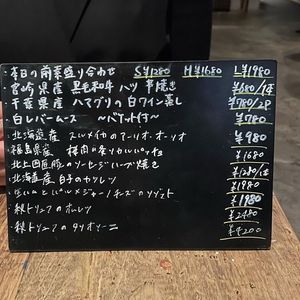 ・本日の前菜盛り合わせ S¥1280 M¥1680 L¥1980
・宮崎県産 黒毛和牛ハツ 串焼き ¥680/1本
・千葉県産 ハマグリの白ワイン蒸し ¥780/2P
・白レバームース 〜バゲット付〜 ¥780
・北海道産 スルメイカのアーリオ・オーリオ ¥980
・福島県産 のカルパッチョ ¥1680
・北上田原豚のソーセージハーブ焼き ¥1280/1本
・北海道産 白子のカツレツ ¥1980
・生ハムとパルミジャーノチーズのリゾット ¥1980
・秋トリュフのオムレツ ¥2480
・秋トリュフのタリオリーニ ¥4200